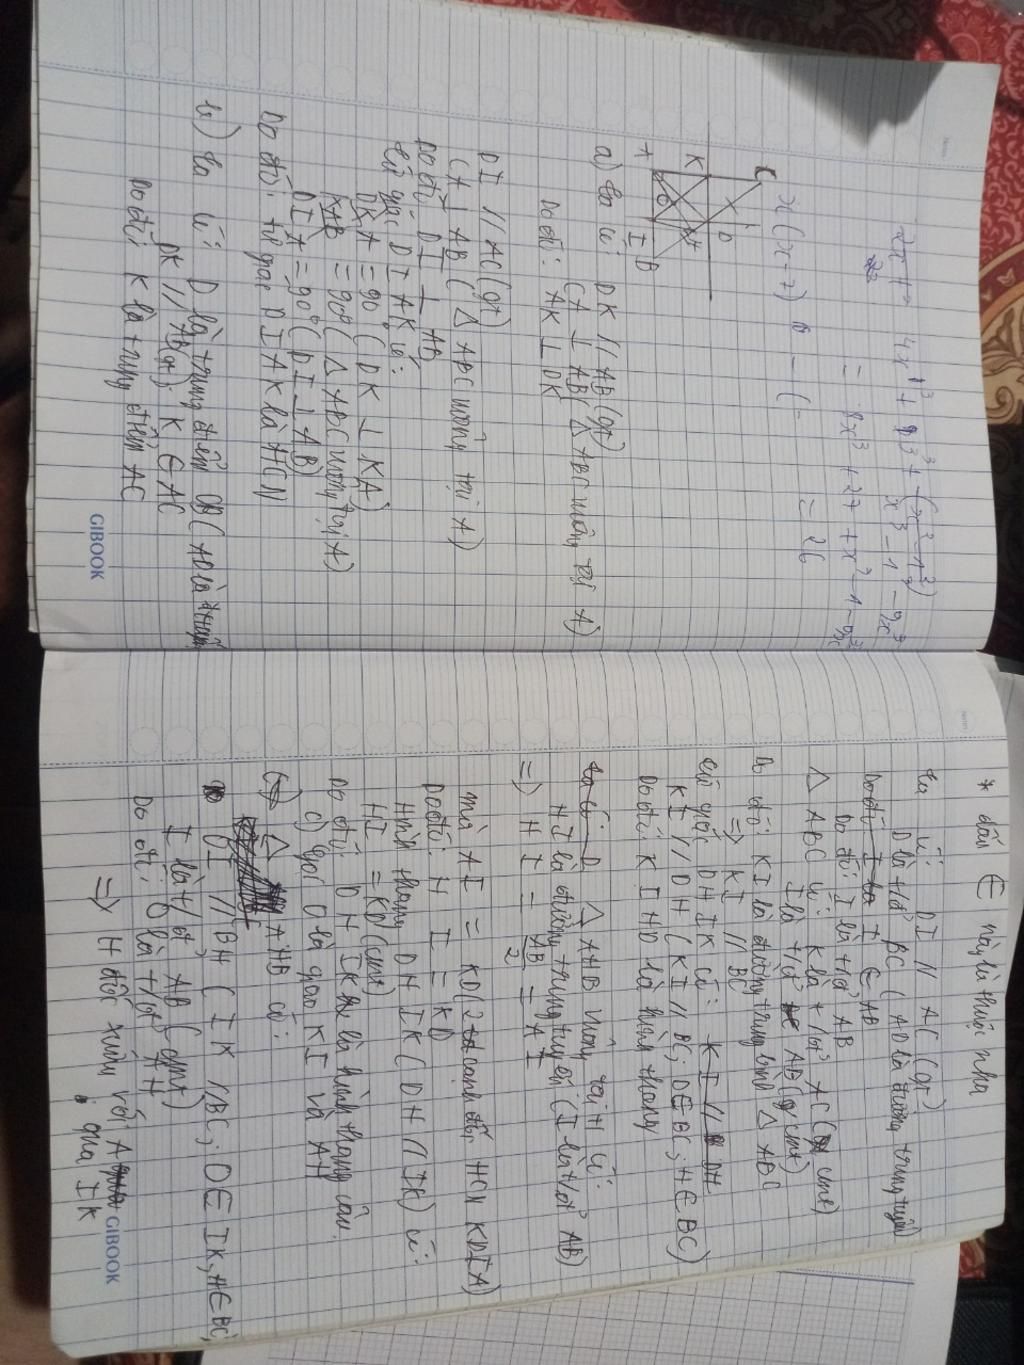 4x³ + 3³ + (x³ - 1³)
x³ - 1 - 9x³
= 8x³ + 27 + x³ - 1 - 9x³
= 26
x(x-7) - (-
C
D
K
H
O
A
I
B
a) Ta có: DK // AB (gt)
CA ⊥ AB (△ ABC vuông tại A)
Do đó: AK ⊥ DK
DI // AC (gt)
CA ⊥ AB (△ ABC vuông tại A)
Do đó DI ⊥ AB
tứ giác DIAK có:
DKA = 90° (DK ⊥ KA)
KAB = 90° (△ ABC vuông tại A)
DIA = 90° (DI ⊥ AB)
Do đó: tứ giác DIAK là HCN
b) Ta có: D là trung điểm CB (AD là trung
DK // AB (gt), K ∈ AC
Do đó: K là trung điểm AC
GIBOOK
* dấu ∈ này là thuộc nha
Ta có: DI // AC (gt)
D là t/đ² BC (AD là đường trung tuyến)
I ∈ AB
Do đó: I là t/đ² AB
△ ABC có: K là t/đ² AC (cmt)
I là t/đ² AB (cmt)
Do đó: KI là đường trung bình △ ABC
=> KI // BC
tứ giác DHIK có: KI // DH
KI // DH (KI // BC; D ∈ BC; H ∈ BC)
Do đó: KIHD là hình thang
△ AHB vuông tại H có:
HI là đường trung tuyến (I là t/đ² AB)
=> HI = AB/2 = AI
mà AI = KD (2 cạnh đối, HCN KDIA)
Do đó: HI = KD
Hình thang DHIK (DH // IK) có:
HI = KD (cmt)
Do đó: DHIK là hình thang cân
c) gọi O là giao KI và AH
△ AHB có:
OI // BH (IK // BC; O ∈ IK, H ∈ BC)
I là t/đ AB (cmt)
Do đó: O là t/đ² AH
=> H đối xứng với A qua IK
GIBOOK